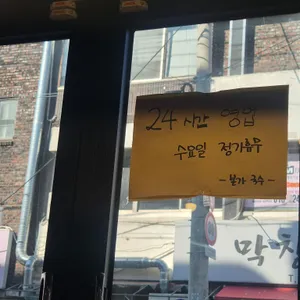 24 시간 영업
수요일 정기휴무
- 본가 국수 -
막창